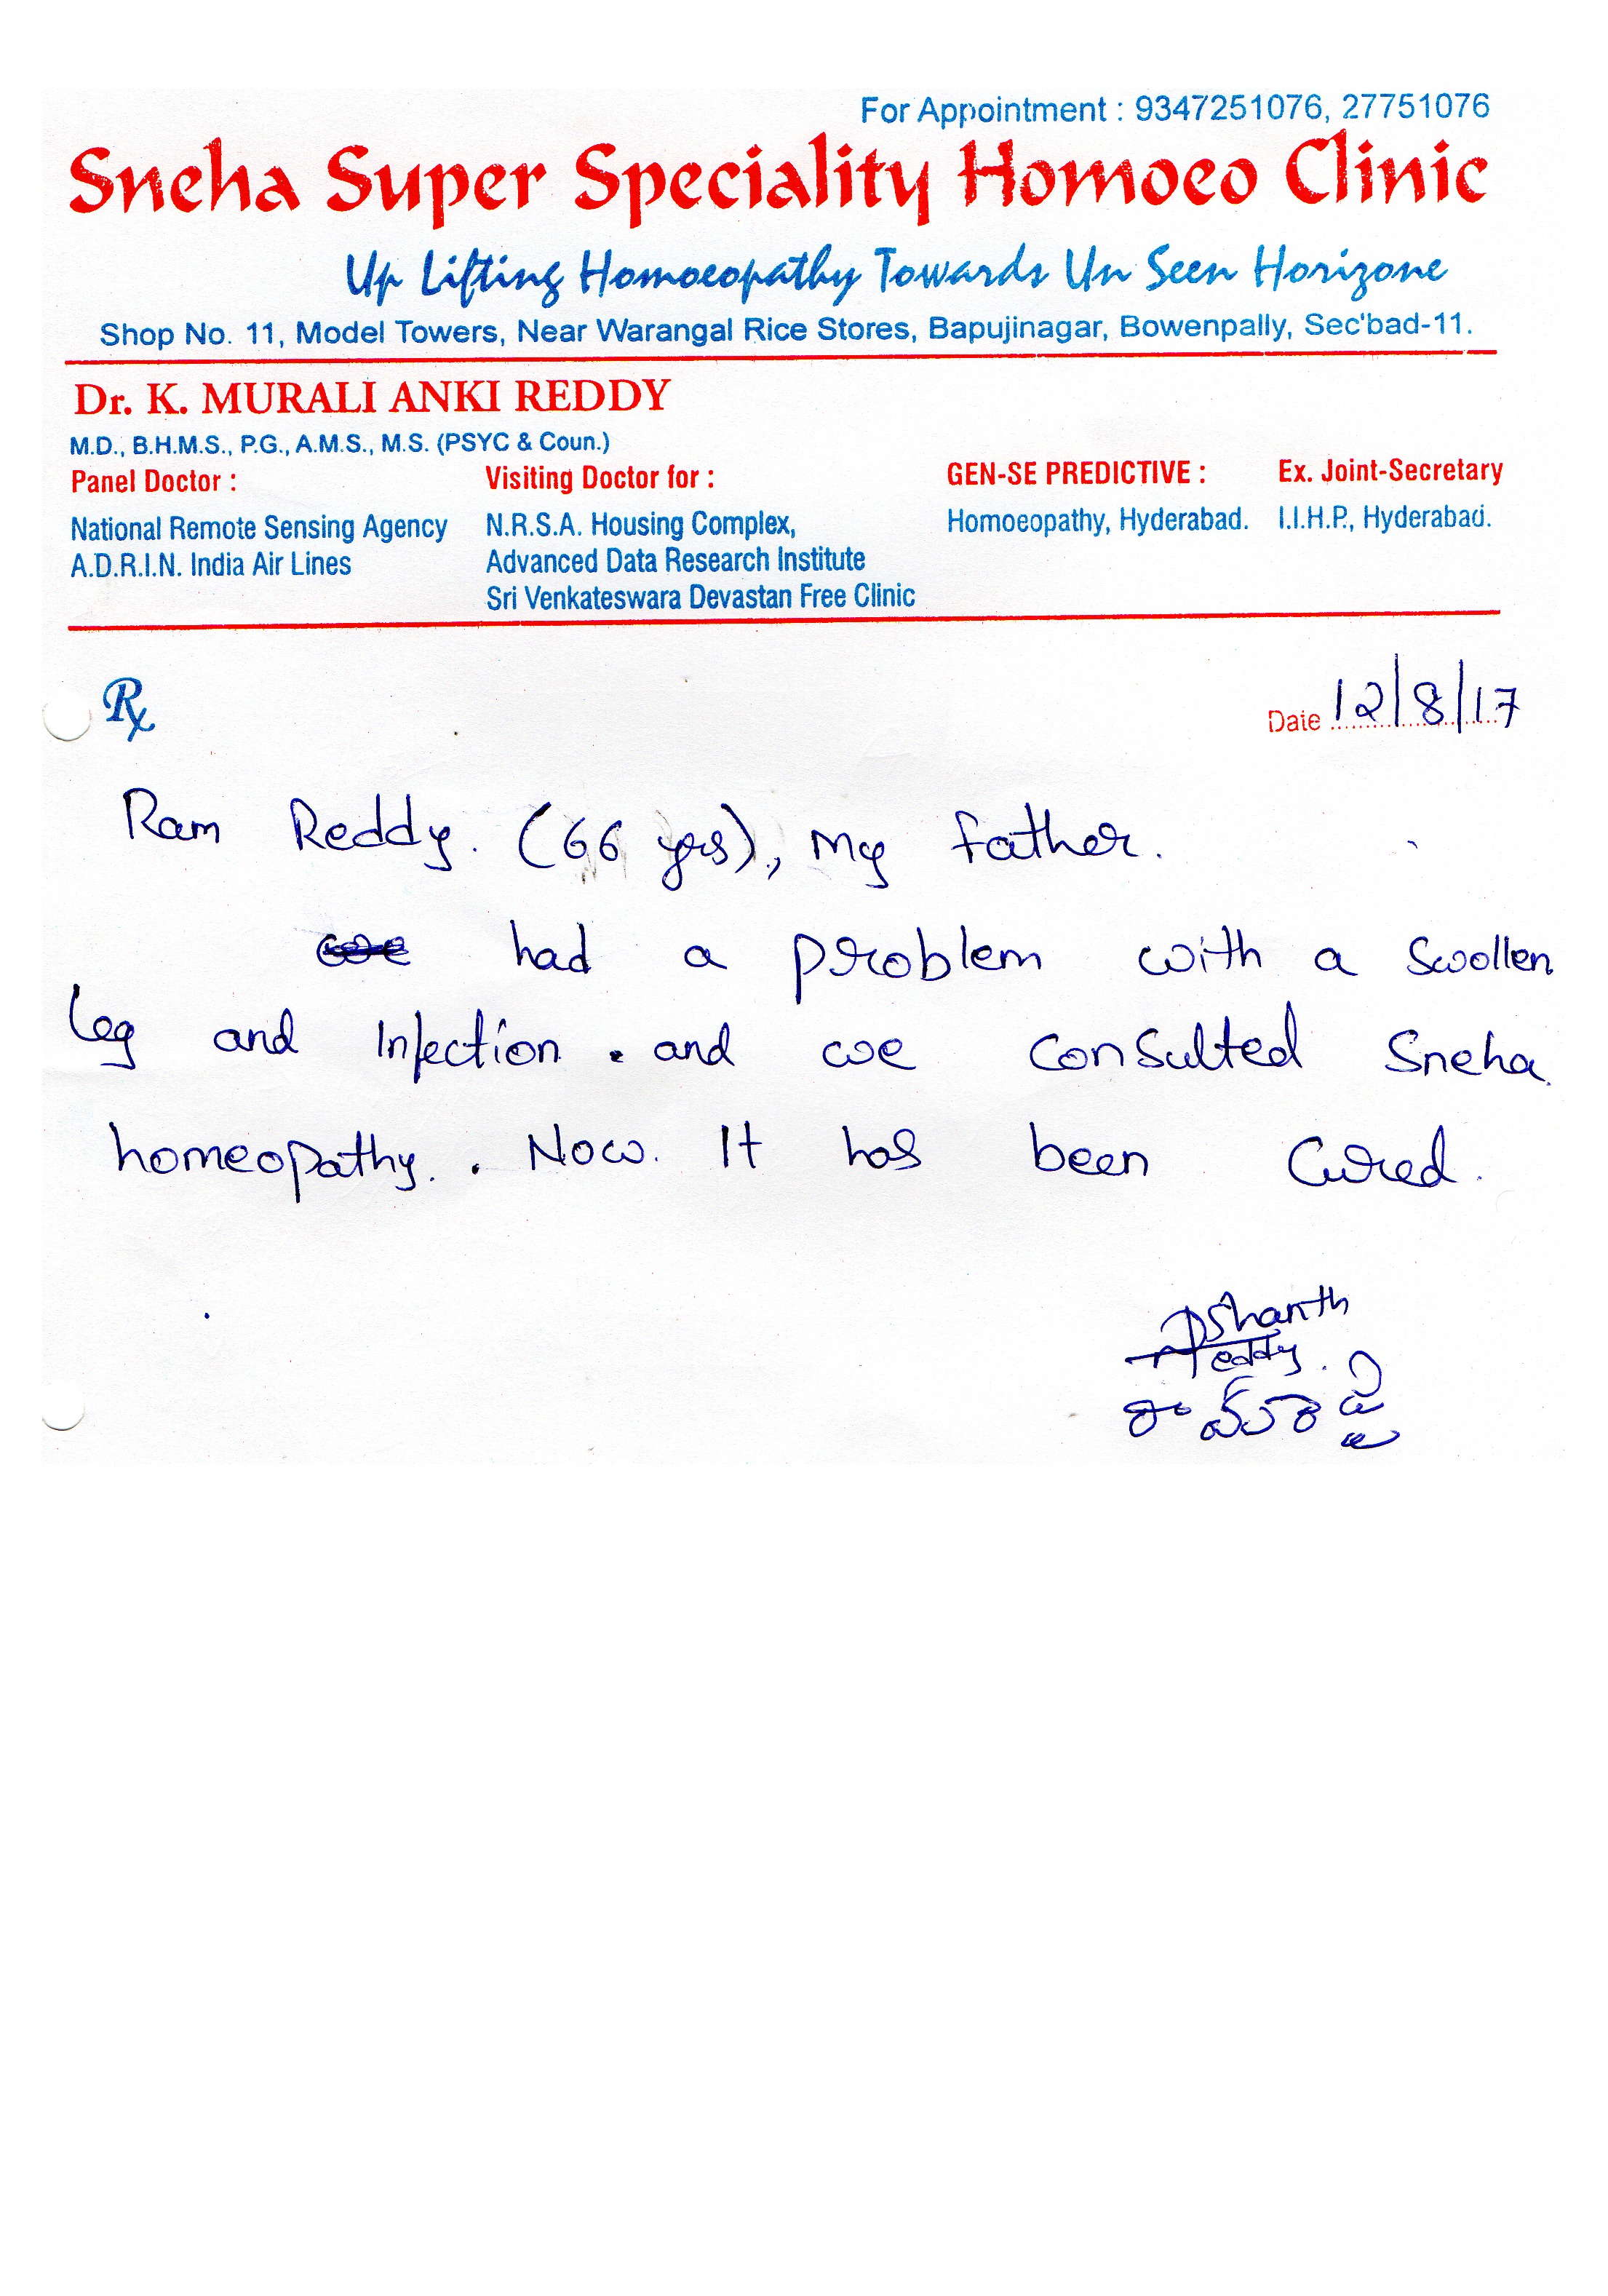 For Appointment : 9347251076, 27751076
Sneha Super Speciality Homoeo Clinic
Up Lifting Homoeopathy Towards Un Seen Horizone
Shop No. 11, Model Towers, Near Warangal Rice Stores, Bapujinagar, Bowenpally, Sec'bad-11.
Dr. K. MURALI ANKI REDDY
M.D., B.H.M.S., P.G., A.M.S., M.S. (PSYC & Coun.)
Panel Doctor : Visiting Doctor for : GEN-SE PREDICTIVE : Ex. Joint-Secretary
National Remote Sensing Agency N.R.S.A. Housing Complex, Homoeopathy, Hyderabad. I.I.H.P., Hyderabad.
A.D.R.I.N. India Air Lines Advanced Data Research Institute
Sri Venkateswara Devastan Free Clinic
Rx Date 12/8/17
Ram Reddy. (66 yrs), my father.
had a problem with a swollen
leg and Infection. and we consulted Sneha
homeopathy. . Now. It has been Cured.
Reddy.